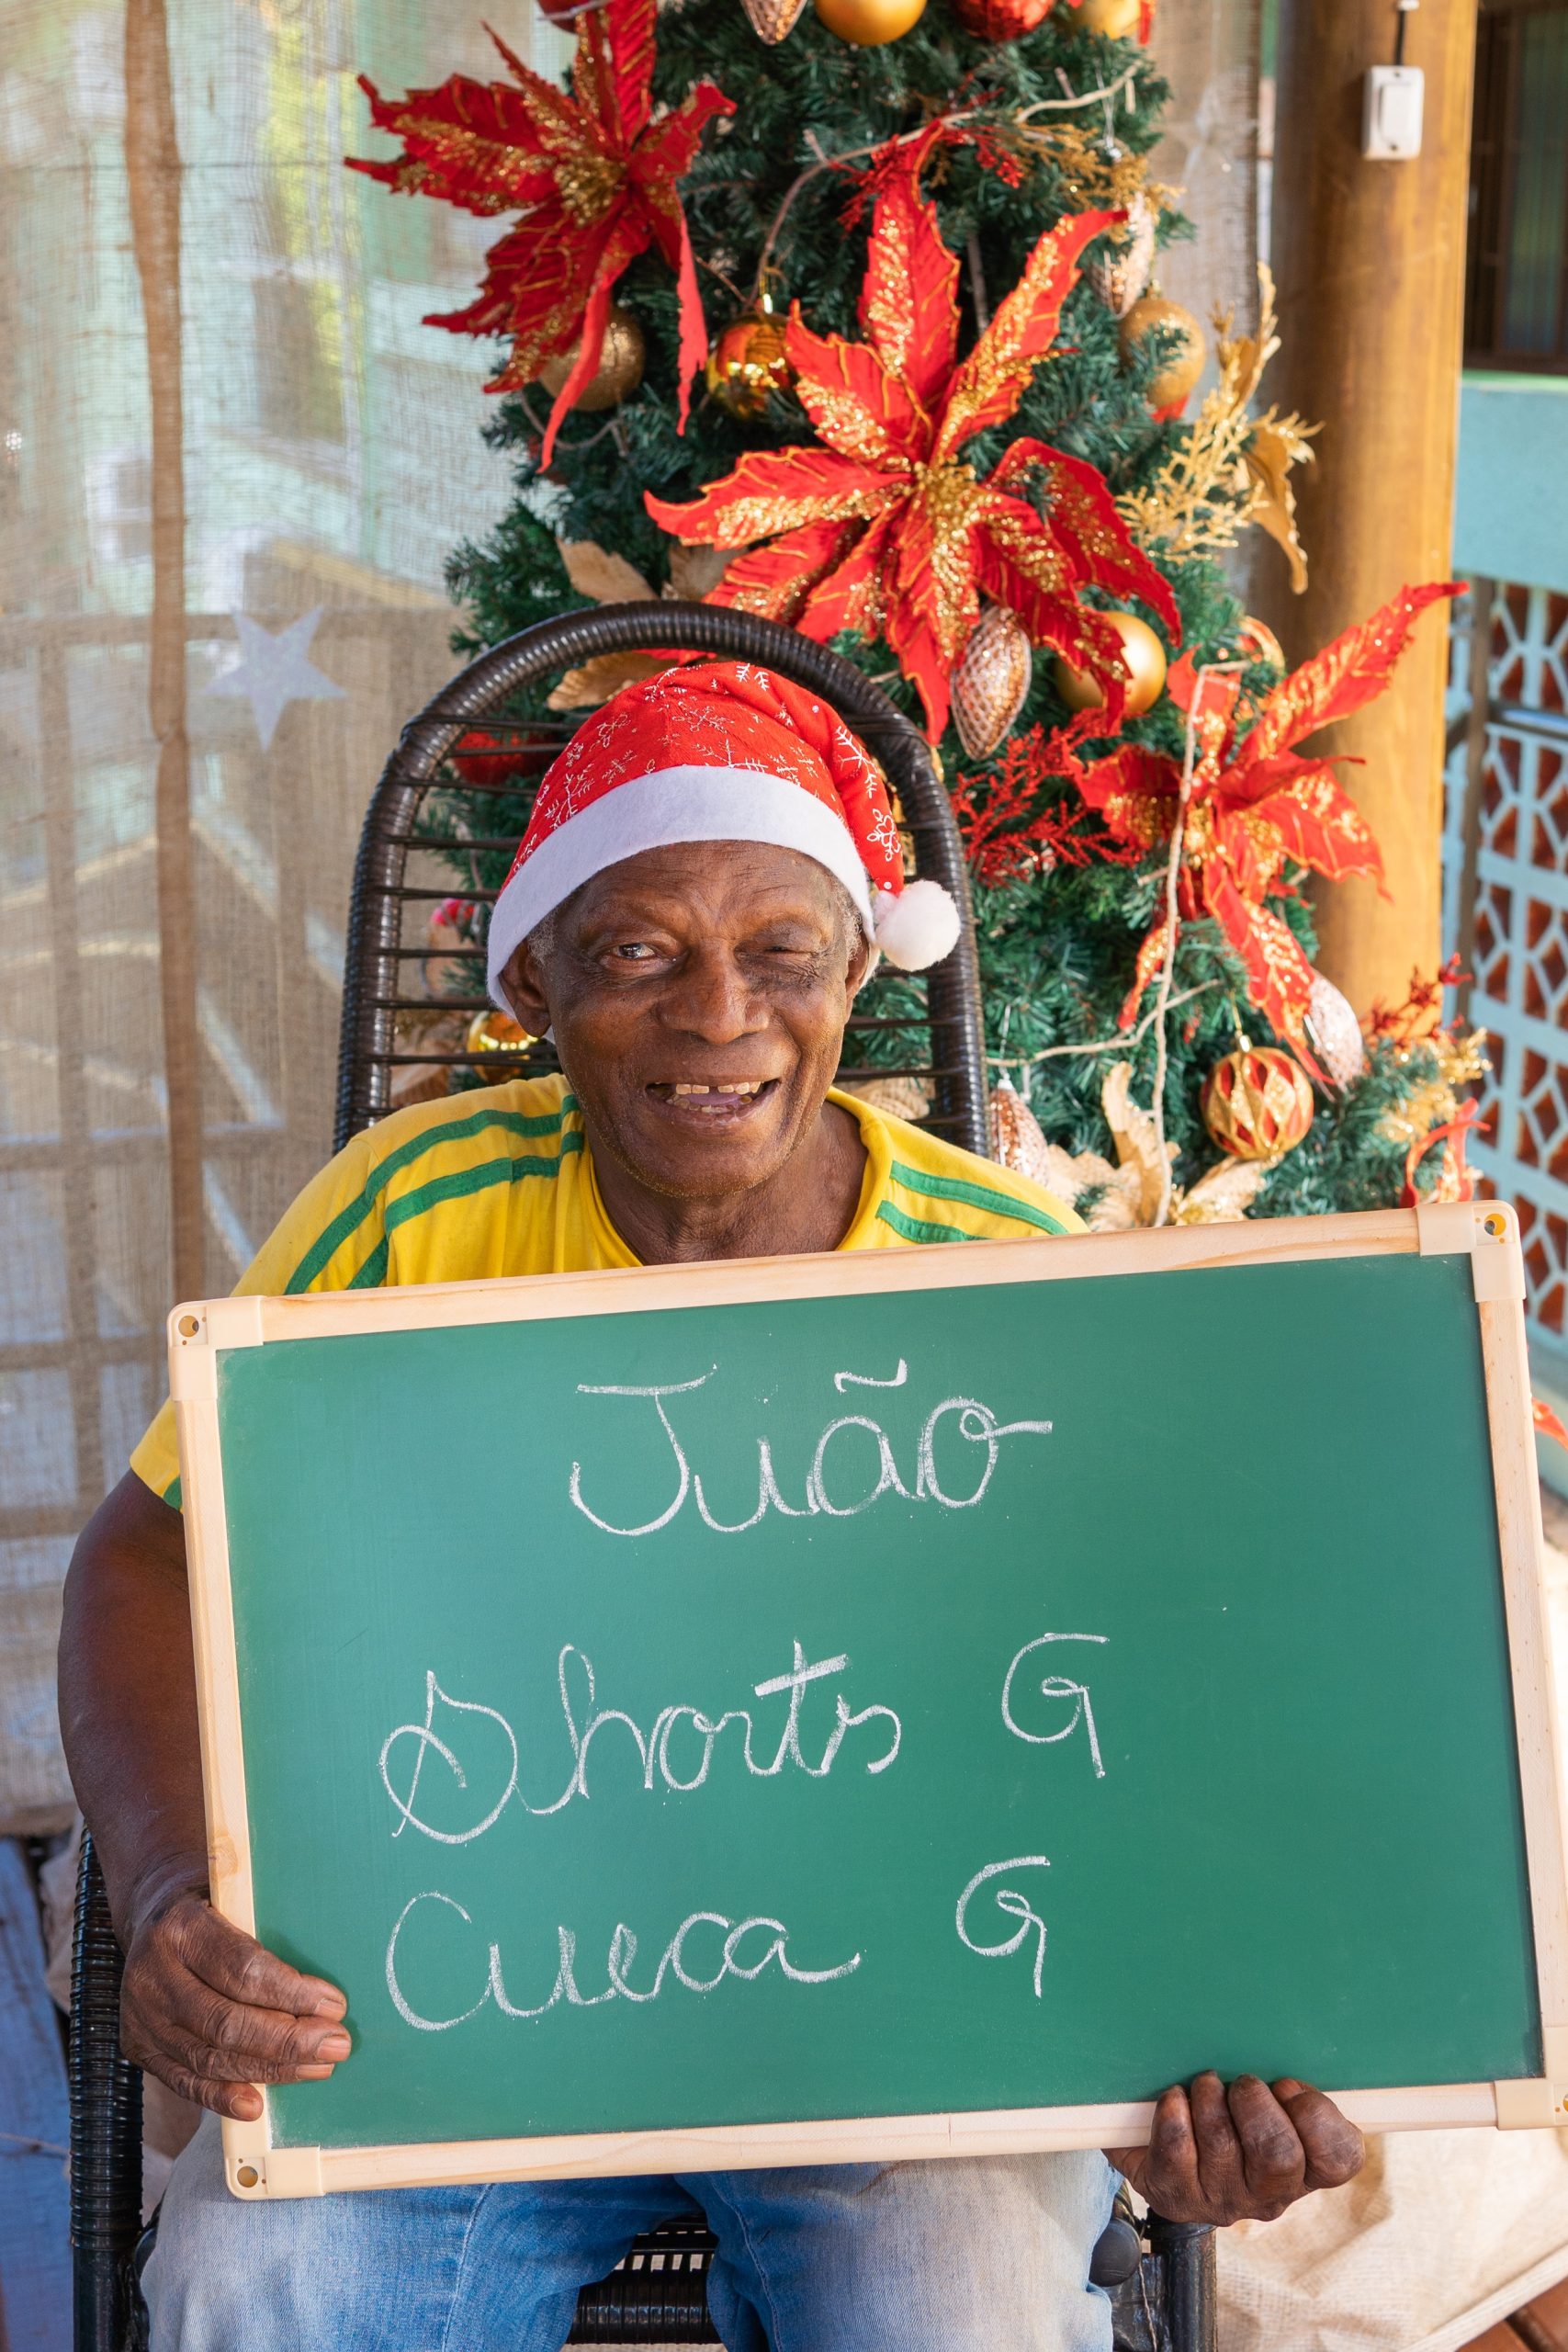 Juão
Shorts G
Cueca G